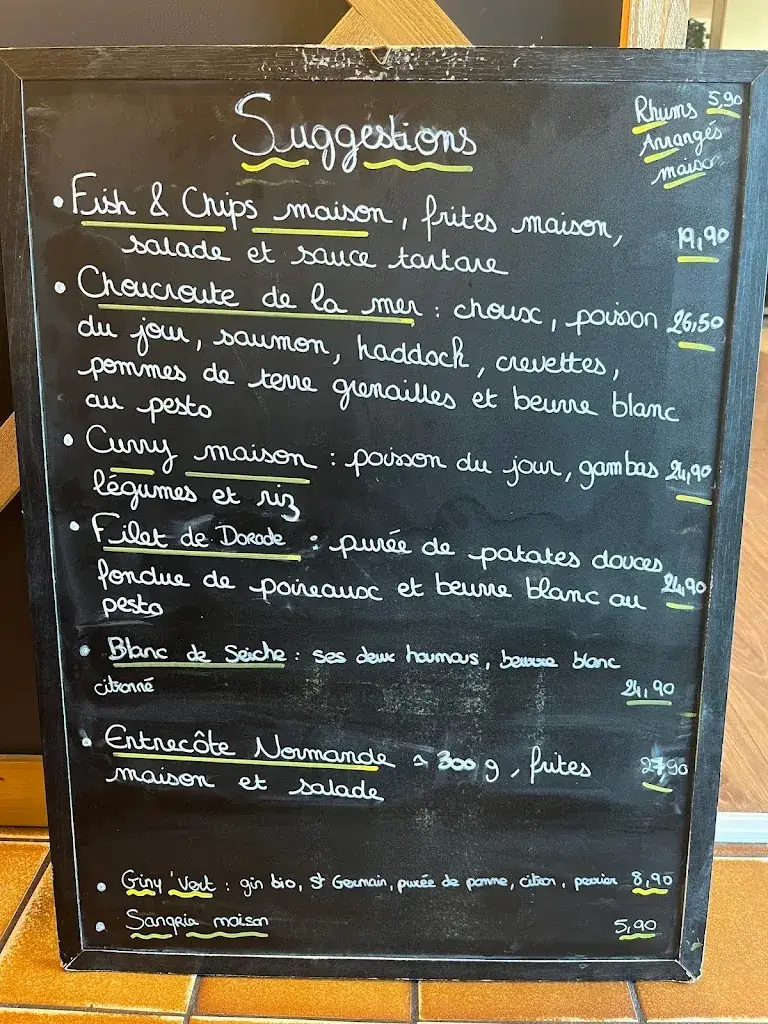 Suggestions
Rhums 5,90
Arrangés
maison
• Fish & Chips maison, frites maison, 19,90
salade et sauce tartare
• Choucroute de la mer : choux, poisson 26,50
du jour, saumon, haddock, crevettes,
pommes de terre grenailles et beurre blanc
au pesto
• Curry maison : poisson du jour, gambas 24,90
légumes et riz
• Filet de Dorade : purée de patates douces,
fondue de poireaux et beurre blanc au 24,90
pesto
• Blanc de Seiche : ses deux houmous, beurre blanc
citronné 24,90
• Entrecôte Normande ~ 300 g, frites 27,90
maison et salade
• Giny'Vert : gin bio, St Germain, purée de pomme, citron, perrier 8,90
• Sangria maison 5,90